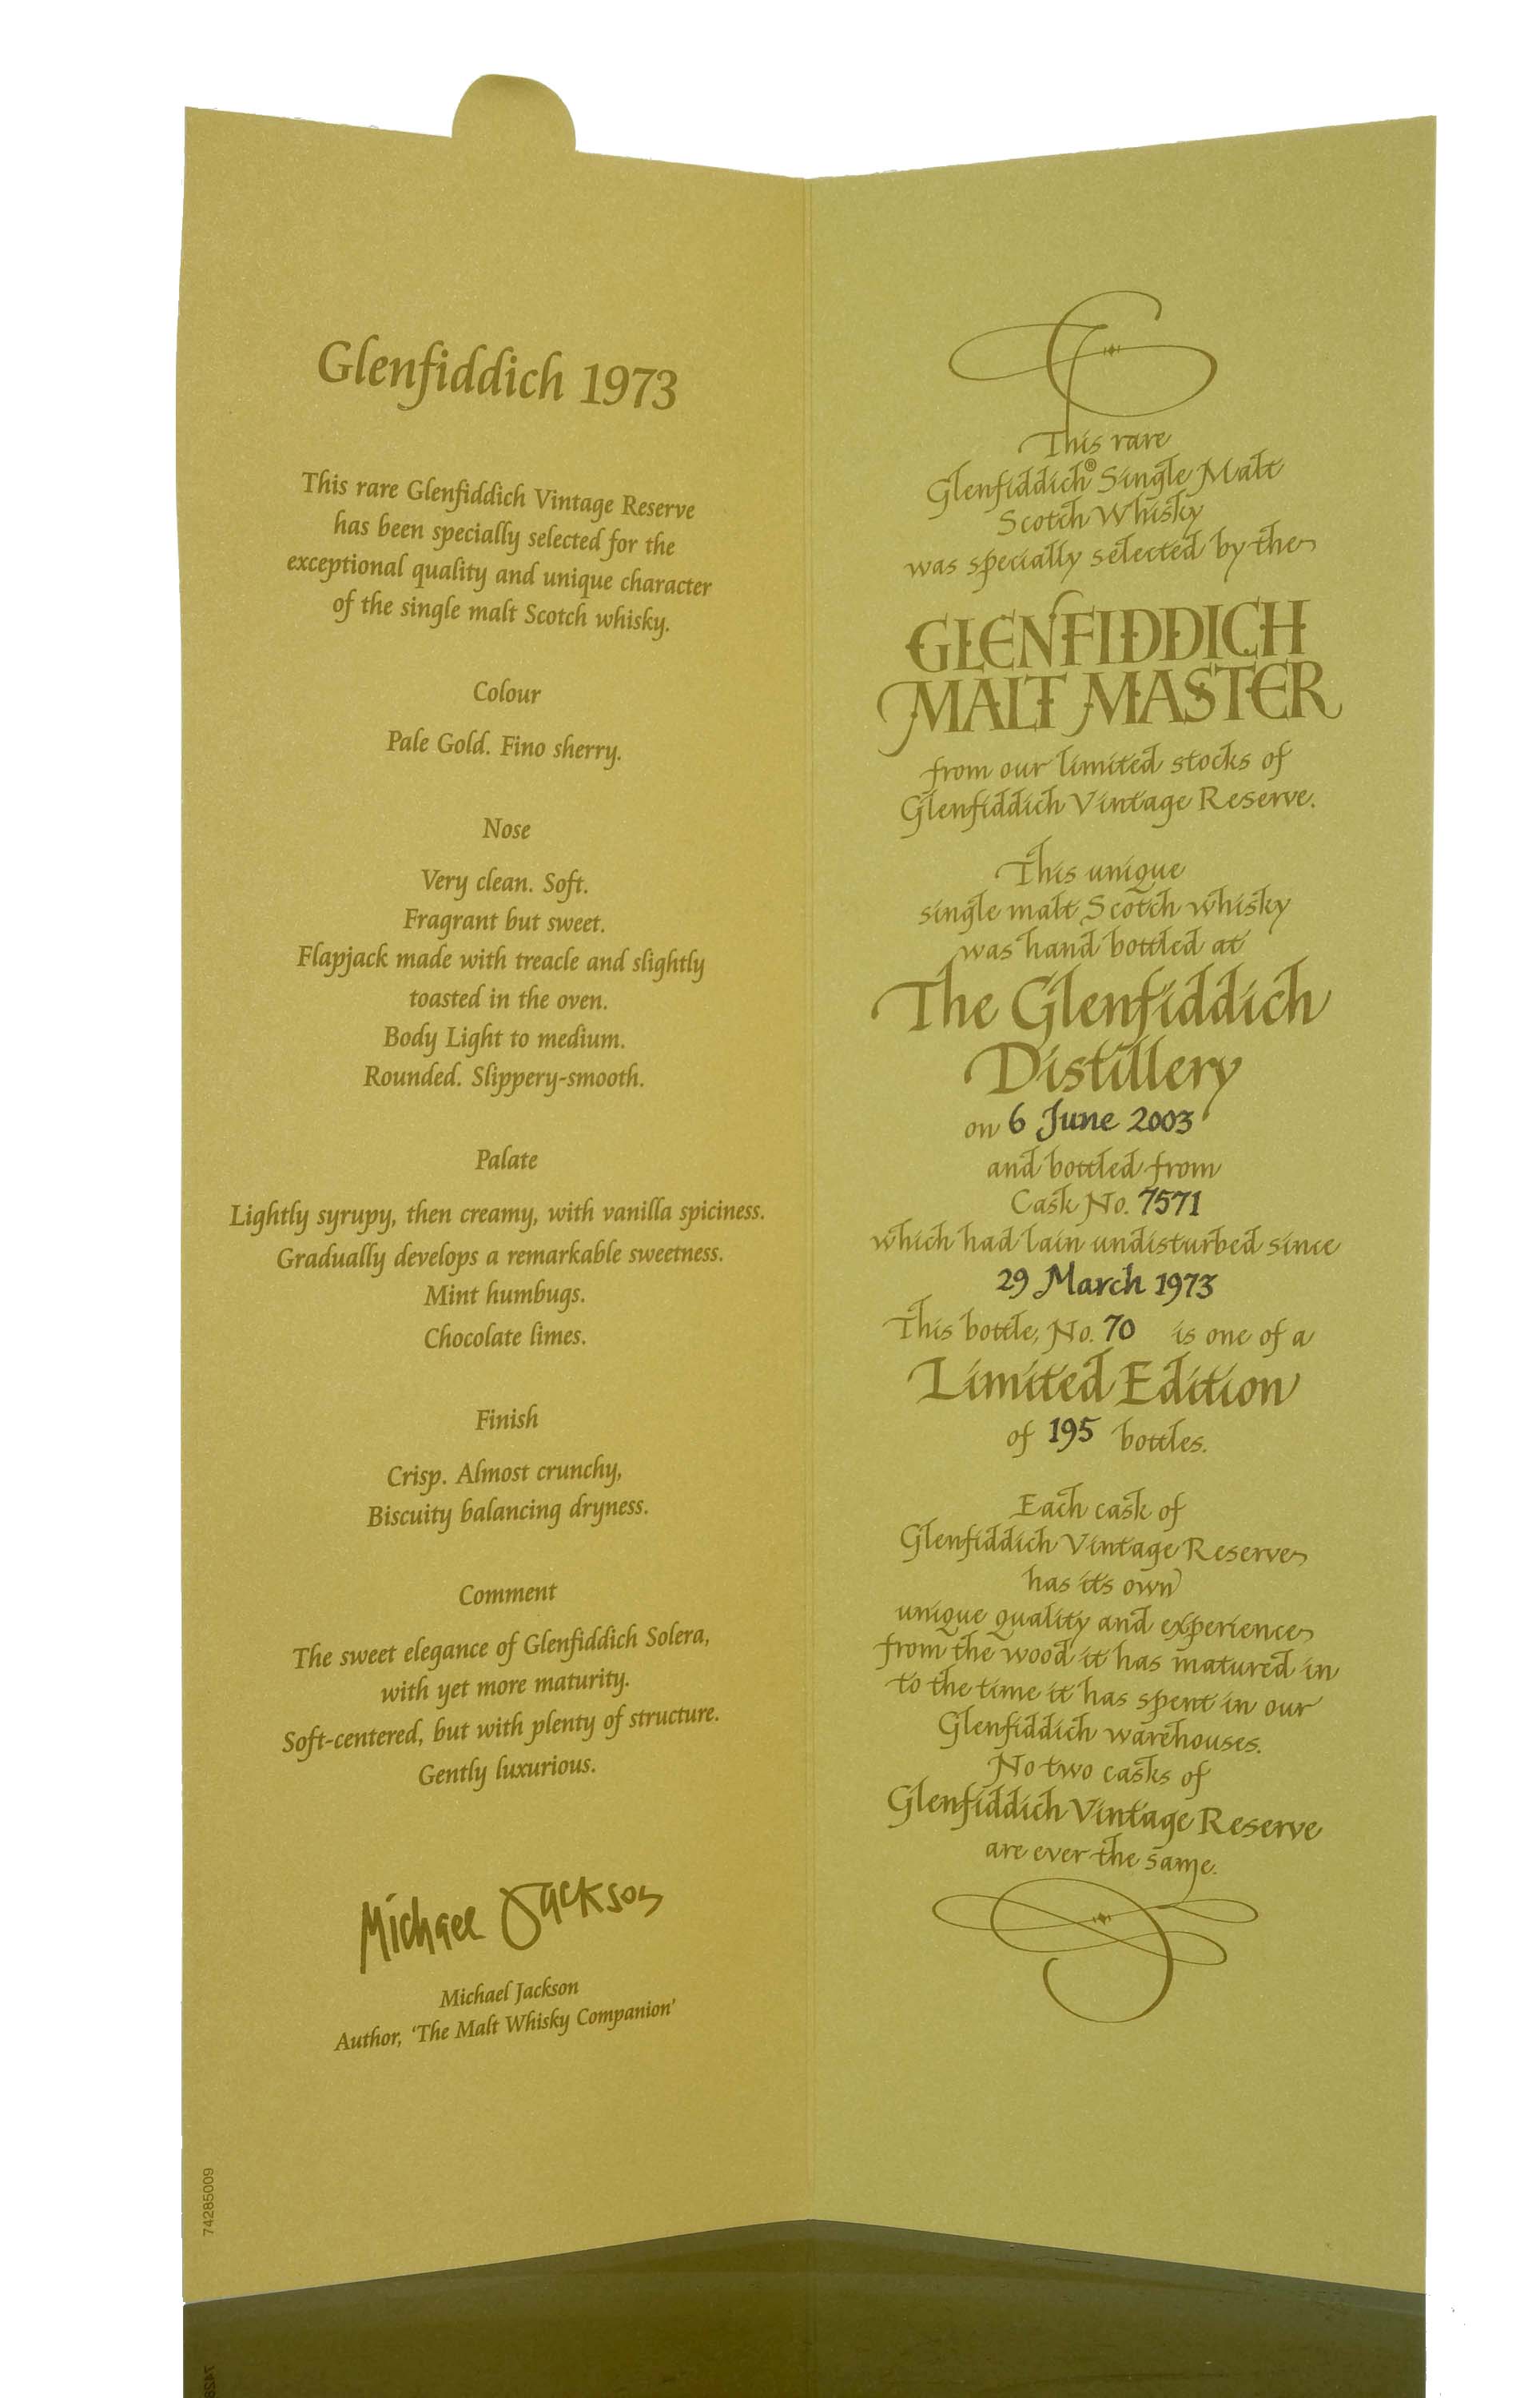 Glenfiddich 1973
This rare Glenfiddich Vintage Reserve
has been specially selected for the
exceptional quality and unique character
of the single malt Scotch whisky.
Colour
Pale Gold. Fino sherry.
Nose
Very clean. Soft.
Fragrant but sweet.
Flapjack made with treacle and slightly
toasted in the oven.
Body Light to medium.
Rounded. Slippery-smooth.
Palate
Lightly syrupy, then creamy, with vanilla spiciness.
Gradually develops a remarkable sweetness.
Mint humbugs.
Chocolate limes.
Finish
Crisp. Almost crunchy,
Biscuity balancing dryness.
Comment
The sweet elegance of Glenfiddich Solera,
with yet more maturity.
Soft-centered, but with plenty of structure.
Gently luxurious.
Michael Jackson
Michael Jackson
Author, ‘The Malt Whisky Companion’
74285009
This rare
Glenfiddich® Single Malt
Scotch Whisky
was specially selected by the
GLENFIDDICH
MALT MASTER
from our limited stocks of
Glenfiddich Vintage Reserve.
This unique
single malt Scotch whisky
was hand bottled at
The Glenfiddich
Distillery
on 6 June 2003
and bottled from
Cask No. 7571
which had lain undisturbed since
29 March 1973
This bottle, No. 70 is one of a
Limited Edition
of 195 bottles.
Each cask of
Glenfiddich Vintage Reserve
has its own
unique quality and experience
from the wood it has matured in
to the time it has spent in our
Glenfiddich warehouses.
No two casks of
Glenfiddich Vintage Reserve
are ever the same.